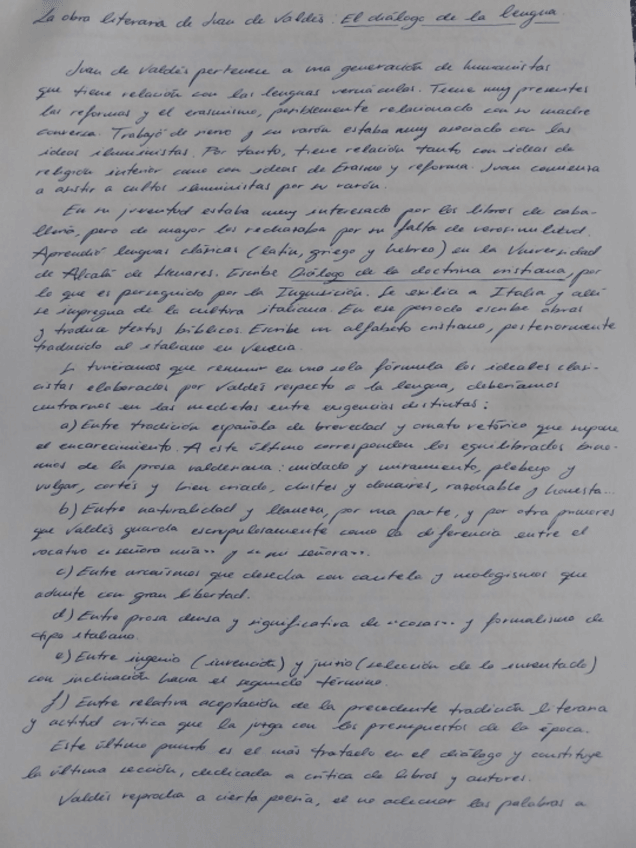 La obra literaria de Juan de Valdés: El diálogo de la lengua.
Juan de Valdés pertenece a una generación de humanistas
que tiene relación con las lenguas vernáculas. Tiene muy presentes
las reformas y el erasmismo, posiblemente relacionado con su madre
conversa. Trabajó de siervo y su varón estaba muy asociado con las
ideas iluministas. Por tanto, tiene relación tanto con ideas de
religión interior como con ideas de Erasmo y reforma. Juan comienza
a asistir a cultos iluministas por su varón.
En su juventud estaba muy interesado por los libros de caba-
llería, pero de mayor los rechazaba por su falta de verosimilitud.
Aprendió lenguas clásicas (latín, griego y hebreo) en la Universidad
de Alcalá de Henares. Escribe Diálogo de la doctrina cristiana, por
lo que es perseguido por la Inquisición. Se exilia a Italia y allí
se impregna de la cultura italiana. En ese periodo escribe obras
y traduce textos bíblicos. Escribe un alfabeto cristiano, posteriormente
traducido al italiano en Venecia.
Si tuviéramos que resumir en una sola fórmula los ideales clasi-
cistas elaborados por Valdés respecto a la lengua, deberíamos
centrarnos en las medietas entre exigencias distintas:
a) Entre tradición española de brevedad y ornato retórico que supone
el encarecimiento. A este último corresponden los equilibrados bino-
mios de la prosa valdesiana: cuidado y miramiento, plebeyo y
vulgar, cortés y bien criado, chistes y donaires, razonable y honesta...
b) Entre naturalidad y llaneza, por una parte, y por otra primores
que Valdés guarda escrupulosamente como la diferencia entre el
vocativo «señora mía» y «mi señora».
c) Entre arcaísmos que desecha con cautela y neologismos que
admite con gran libertad.
d) Entre prosa densa y significativa de «cosas» y formalismo de
tipo italiano.
e) Entre ingenio (invención) y juicio (selección de lo inventado)
con inclinación hacia el segundo término.
f) Entre relativa aceptación de la precedente tradición literaria
y actitud crítica que la juzga con los presupuestos de la época.
Este último punto es el más tratado en el diálogo y constituye
la última sección, dedicada a crítica de libros y autores.
Valdés reprocha a cierta poesía, el no adecuar las palabras a